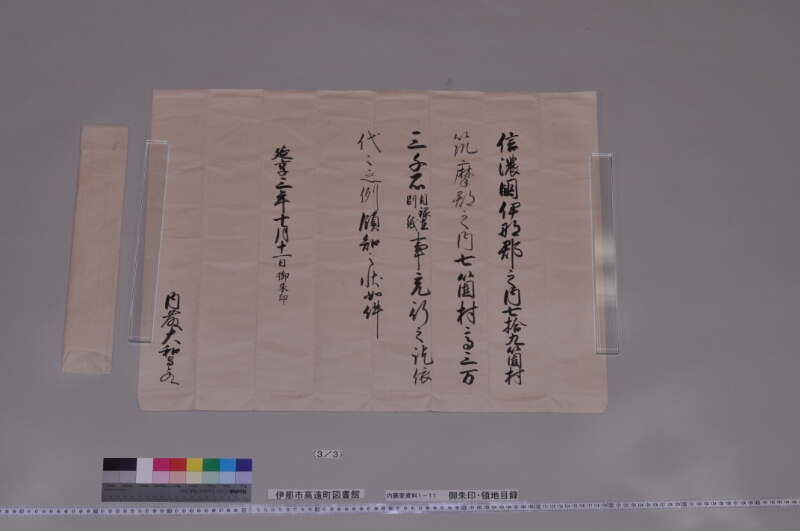 信濃國伊那郡之内七拾九箇村
筑摩郡之内七箇村高三万
三千石目録在別紙事充行之訖依
代々之例領知之状如件
延享三年十月十一日御朱印
内藤大和守殿
(3/3)
伊那市高遠町図書館
内藤家資料1-11
御朱印・領地目録